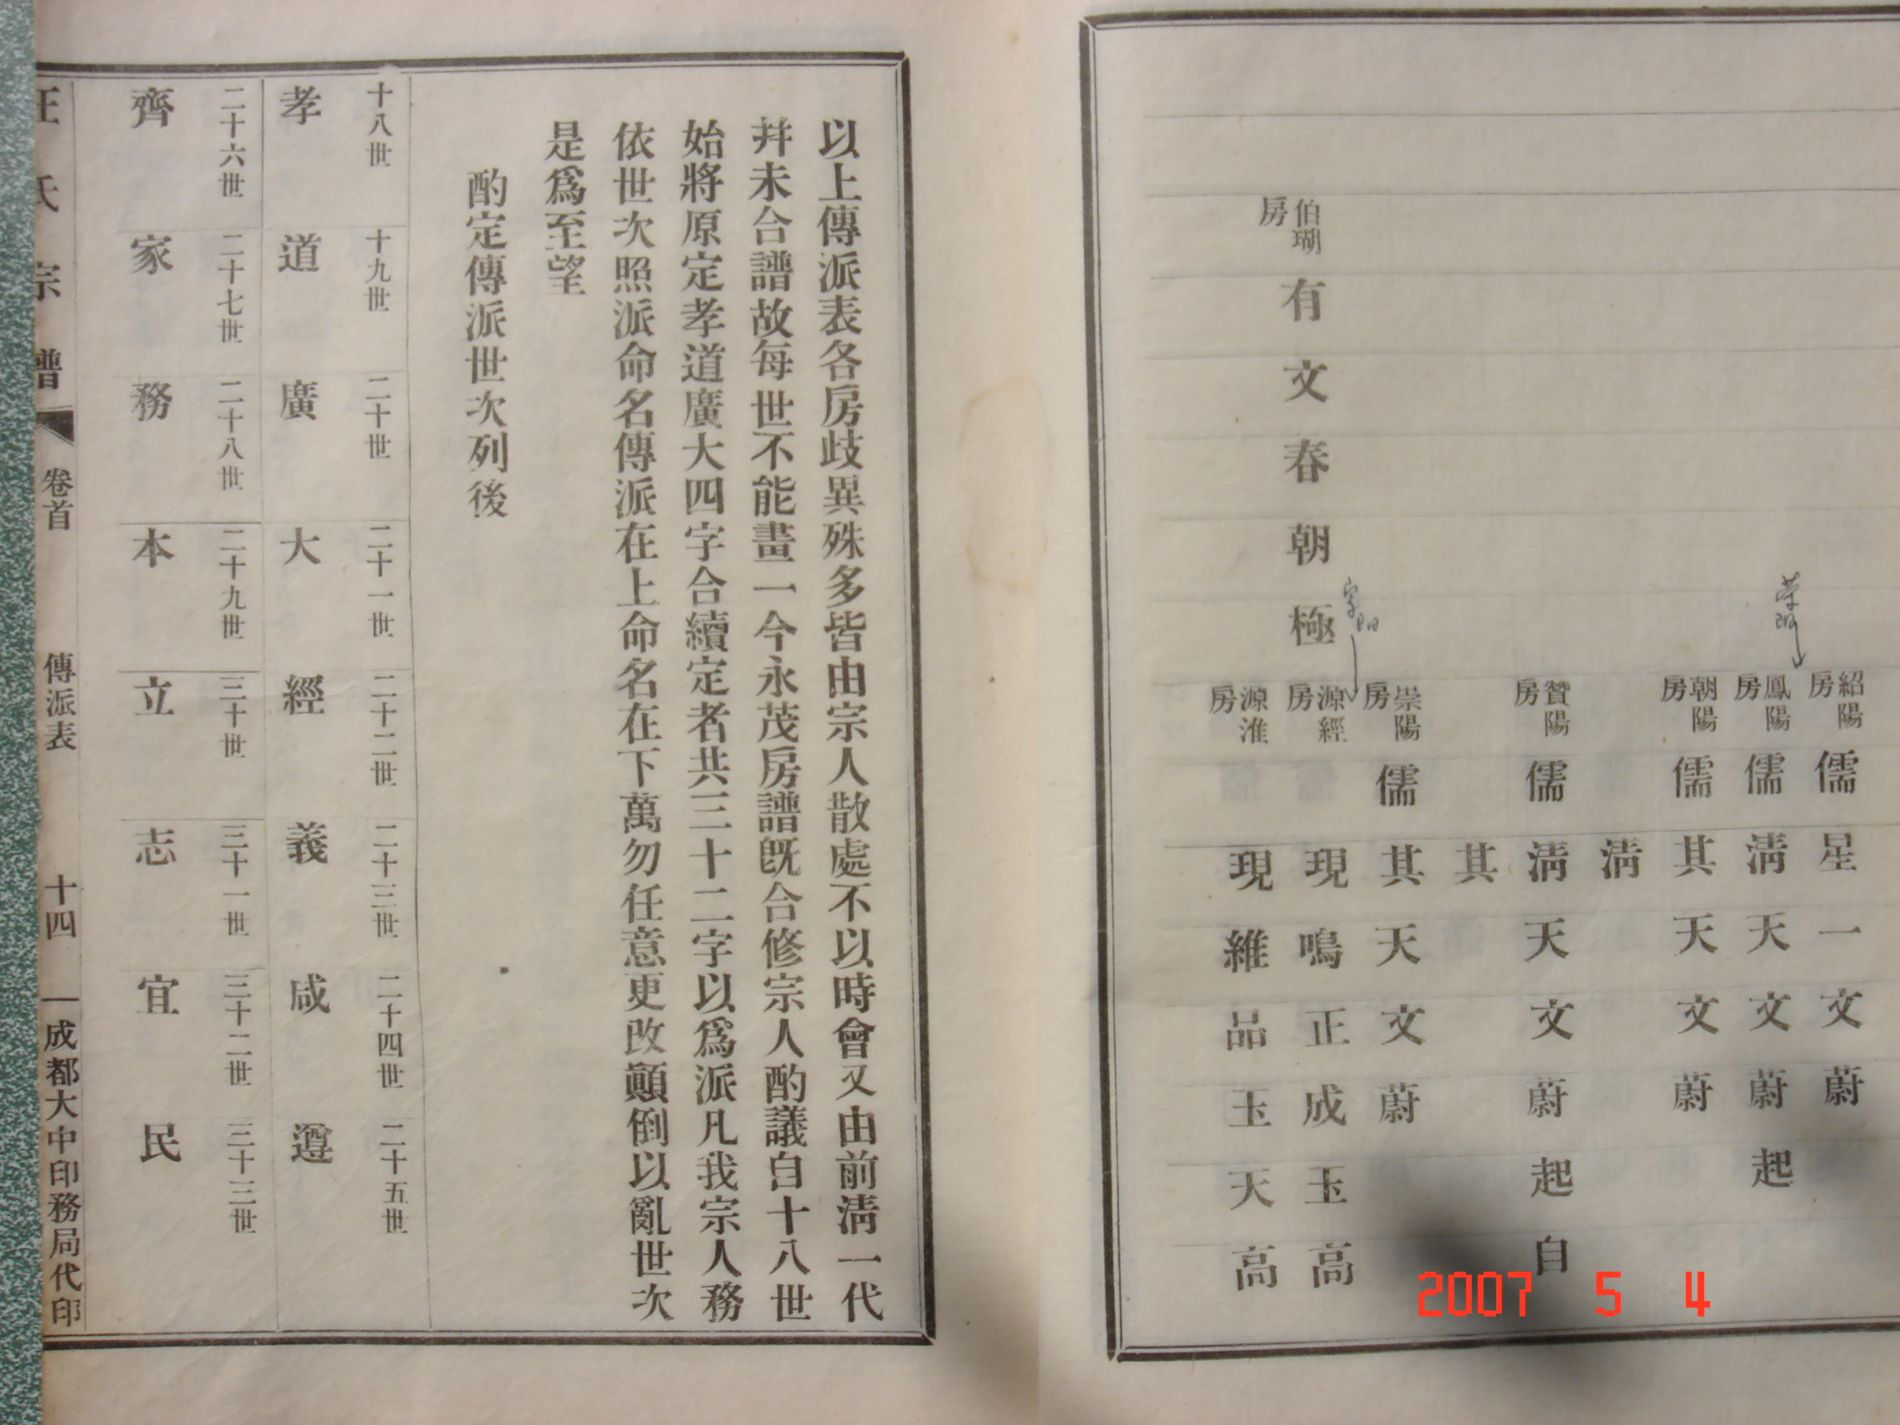 伯瑚房
有文春朝極
紹陽房 儒星一文蔚
鳳陽房 儒淸天文蔚起
朝陽房 儒其天文蔚
淸
贊陽房 儒淸天文蔚起自
其
崇陽房 儒其天文蔚
源經房 現鳴正成玉高
源淮房 現維品玉天高
以上傳派表各房歧異殊多皆由宗人散處不以時會又由前淸一代
幷未合譜故每世不能畫一今永茂房譜旣合修宗人酌議自十八世
始將原定孝道廣大四字合續定者共三十二字以爲派凡我宗人務
依世次照派命名傳派在上命名在下萬勿任意更改顚倒以亂世次
是爲至望
酌定傳派世次列後
十八世 十九世 二十世 二十一世 二十二世 二十三世 二十四世 二十五世
孝 道 廣 大 經 義 咸 遵
二十六世 二十七世 二十八世 二十九世 三十世 三十一世 三十二世 三十三世
齊 家 務 本 立 志 宜 民
汪氏宗譜 卷首 傳派表 十四 成都大中印務局代印
2007 5 4